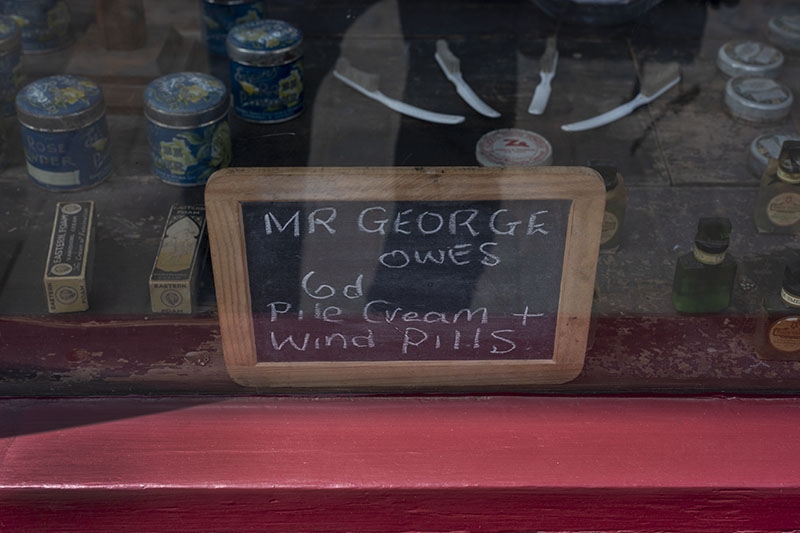 ROSE
POWDER
EASTERN FOAM
EASTERN
FOAM
MR GEORGE
OWES
6d
Pile Cream +
Wind Pills